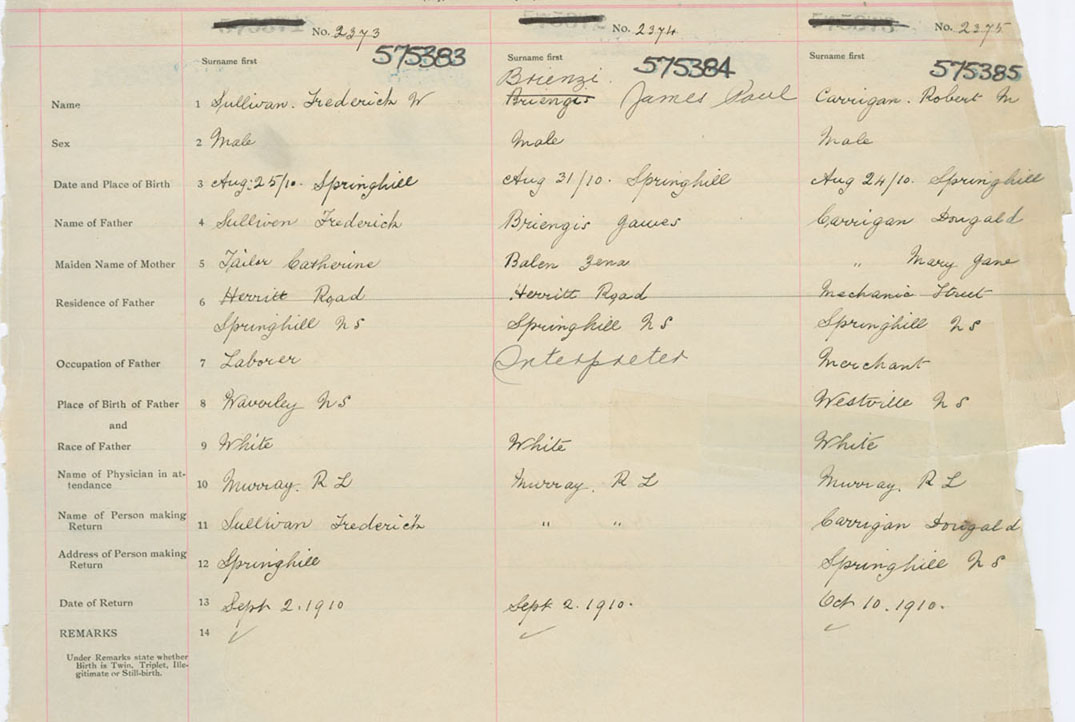 No. 2373 No. 2374 No. 2375
575383 575384 575385
Surname first Surname first Surname first
Brienzi
Name 1 Sullivan. Frederick W Briengis James Paul Carrigan. Robert M
Sex 2 Male Male Male
Date and Place of Birth 3 Aug. 25/10. Springhill Aug 31/10. Springhill Aug 24/10. Springhill
Name of Father 4 Sullivan Frederick Briengis James Carrigan Dougald
Maiden Name of Mother 5 Tailor Catherine Balen Zena " Mary Jane
Residence of Father 6 Herritt Road Herritt Road Mechanic Street
Springhill N S Springhill N S Springhill N S
Occupation of Father 7 Laborer Interpreter Merchant
Place of Birth of Father 8 Waverley N S Westville N S
and
Race of Father 9 White White White
Name of Physician in at-
tendance 10 Murray. R L Murray. R L Murray. R L
Name of Person making
Return 11 Sullivan Frederick " " Carrigan Dougald
Address of Person making
Return 12 Springhill Springhill N S
Date of Return 13 Sept 2. 1910 Sept 2. 1910. Oct 10. 1910.
REMARKS 14
Under Remarks state whether
Birth is Twin, Triplet, Ille-
gitimate or Still-birth.